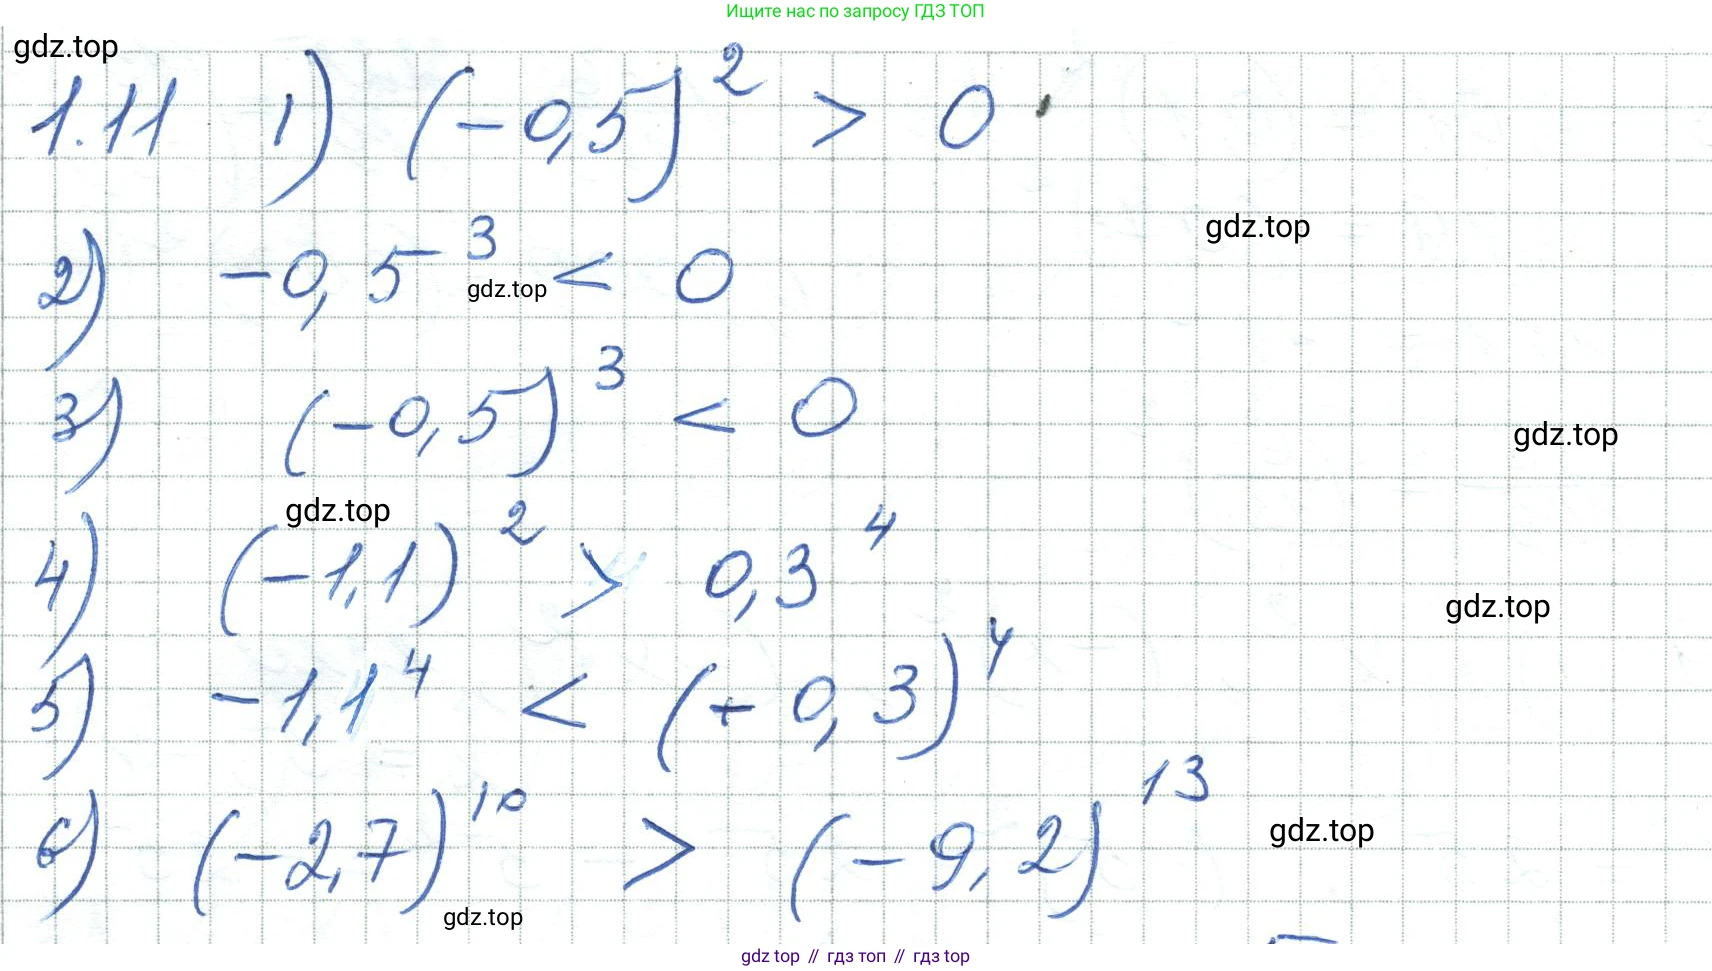 Ищите нас по запросу ГДЗ ТОП
gdz.top
1.11 1) (-0,5)² > 0
gdz.top
2) -0,5³ < 0
gdz.top
3) (-0,5)³ < 0
gdz.top
gdz.top
4) (-1,1)² > 0,3⁴
gdz.top
5) -1,1⁴ < (+0,3)⁴
6) (-2,7)¹⁰ > (-9,2)¹³
gdz.top
gdz.top
gdz top // гдз топ // гдз top